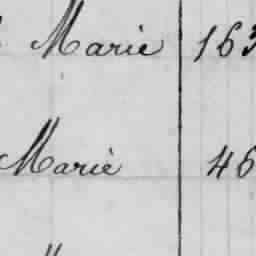 Marie 163
Marie 46